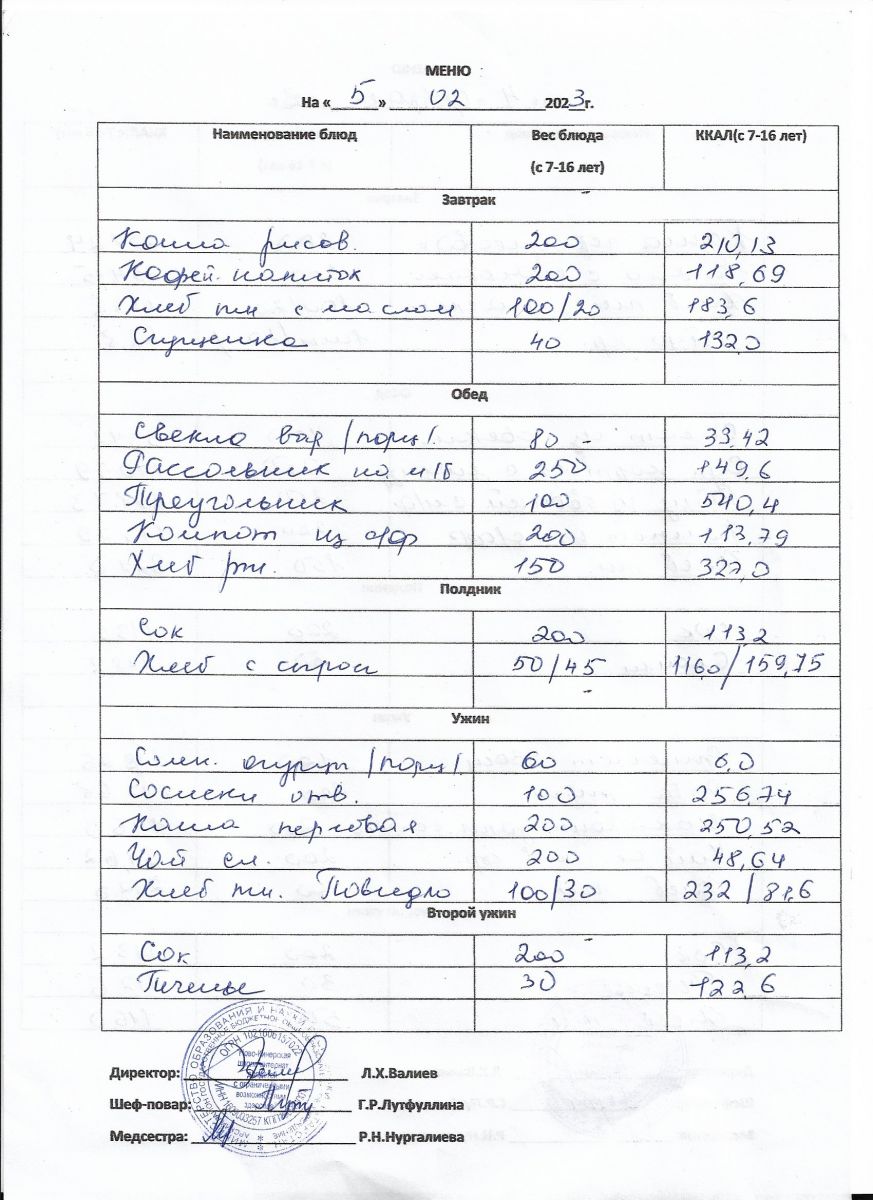 МЕНЮ
На « 5 » 02 2023г.
Наименование блюд Вес блюда (с 7-16 лет) ККАЛ(с 7-16 лет)
Завтрак
Каша рисов. 200 210,13
Кофейн. напиток 200 118,69
Хлеб пш с маслом 100/20 183,6
Сгущенка 40 132,0
Обед
Свекла вар /порц/. 80 33,42
Рассольник на м/б 250 149,6
Треугольник 100 540,4
Компот из с/ф 200 113,79
Хлеб рж. 150 327,0
Полдник
Сок 200 113,2
Хлеб с сыром 50/45 116,0/159,75
Ужин
Солен. огурцы /порц/. 60 6,0
Сосиски отв. 100 256,74
Каша перловая 200 250,52
Чай сл. 200 48,64
Хлеб пш. Повидло 100/30 232 / 81,6
Второй ужин
Сок 200 113,2
Печенье 30 122,6
Директор: Л.Х.Валиев
Шеф-повар: Г.Р.Лутфуллина
Медсестра: Р.Н.Нургалиева